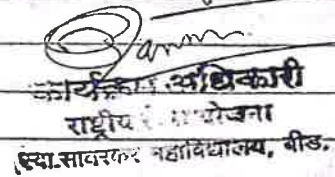 कार्यक्रम अधिकारी
राष्ट्रीय योजना
स्वा.सावरकर महाविद्यालय, बीड.